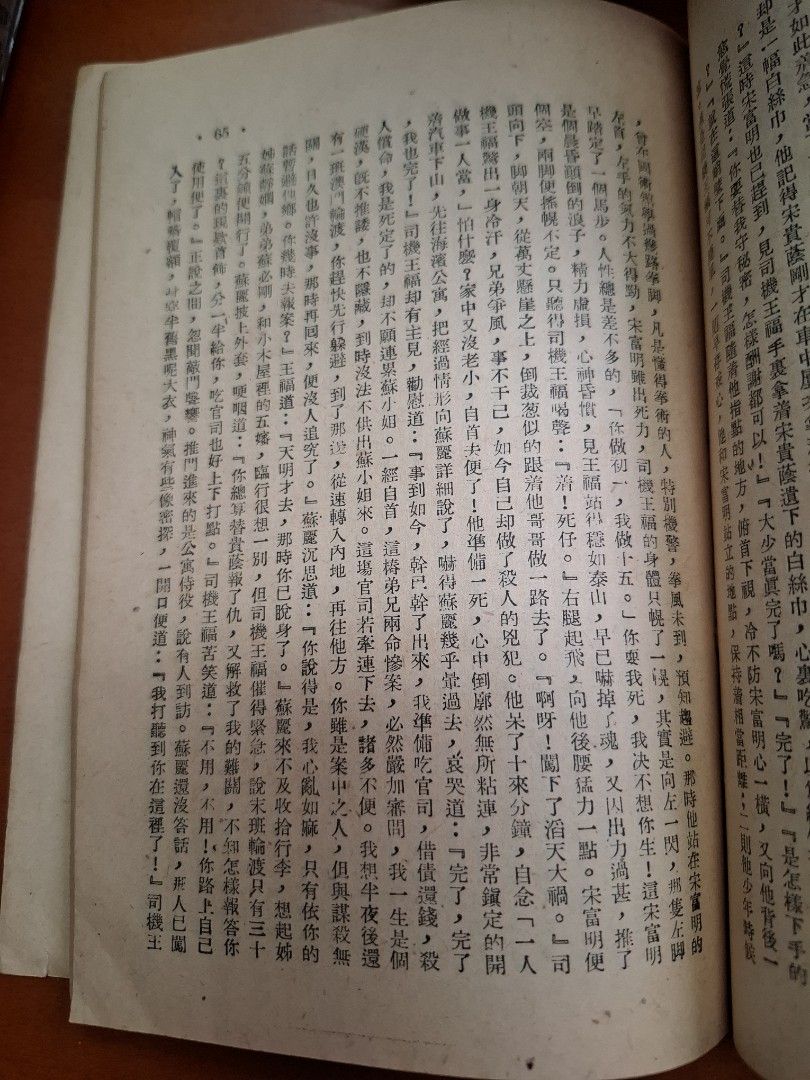 才如此
却是一幅白絲巾，他記得宋貴蔭剛才在車中
？』這時宋富明也已趕到，見司機王福手裏拿着宋貴蔭遺下的白絲巾，心裏吃驚
慌張道：『你要替我守秘密，怎樣酬謝都可以！』『大少當眞完了嗎？』『完了！』『是怎樣下手的
？』司機王福隨着他指點的地方，俯首下視，冷不防宋富明心一橫，又向他背後一
他和宋富明站立的地點，保持着相當距離；二則他少年時候
，曾在國術館學過幾路拳脚，凡是懂得拳術的人，特別機警，拳風未到，預知趨避。那時他站在宋富明的
左首，左手的氣力不大得勁，宋富明雖出死力，司機王福的身體只幌了一幌，其實是向左一閃，那隻左脚
早踏定了一個馬步。人性總是差不多的，「你做初一，我做十五。」你要我死，我決不想你生！這宋富明
是個晨昏顛倒的浪子，精力虛損，心神昏憒，見王福站得穩如泰山，早已嚇掉了魂，又因出力過甚，推了
個空，兩脚便搖幌不定。只聽得司機王福喝聲：『着！死仔。』右腿起飛，向他後腰猛力一點。宋富明便
頭向下，脚朝天，從萬丈懸崖之上，倒栽葱似的跟着他哥哥做一路去了。『啊呀！闖下了滔天大禍。』司
機王福驚出一身冷汗，兄弟爭風，事不干己，如今自己却做了殺人的兇犯。他呆了十來分鐘，自念「一人
做事一人當，」怕什麼？家中又沒老小，自首去便了！他準備一死，心中倒廓然無所粘連，非常鎭定的開
着汽車下山，先往海濱公寓，把經過情形向蘇麗詳細說了，嚇得蘇麗幾乎暈過去，哀哭道：『完了，完了
，我也完了！』司機王福却有主見，勸慰道：『事到如今，幹已幹了出來，我準備吃官司，借債還錢，殺
人償命，我是死定了的，却不願連累蘇小姐。一經自首，這樁弟兄兩命慘案，必然嚴加審問，我一生是個
硬漢，旣不推諉，也不隱藏，到時沒法不供出蘇小姐來。這塲官司若牽連下去，諸多不便。我想半夜後還
有一班澳門輪渡，你趕快先行躱避，到了那邊，從速轉入內地，再往他方。你雖是案中之人，但與謀殺無
關，日久也許沒事，那時再回來，便沒人追究了。』蘇麗沉思道：『你說得是，我心亂如麻，只有依你的
話暫避他鄉。你幾時去報案？』王福道：『天明才去，那時你已脫身了。』蘇麗來不及收拾行李，想起姊
姊蘇靜嫻，弟弟蘇必剛，和小木屋裡的五嬸，臨行很想一別，但司機王福催得緊急，說末班輪渡只有三十
五分鐘便開行了。蘇麗披上外套，哽咽道：『你總算替貴蔭報了仇，又解救了我的難關，不知怎樣報答你
？這裏的現款首飾，分一半給你，吃官司也好上下打點。』司機王福苦笑道：『不用，不用！你路上自己
使用便了。』正說之間，忽聞敲門聲響。推門進來的是公寓侍役，說有人到訪。蘇麗還沒答話，那人已闖
入了，帽簷覆額，身穿半舊黑呢大衣，神氣有些像密探，一開口便道：『我打聽到你在這裡了！』司機王
·65·